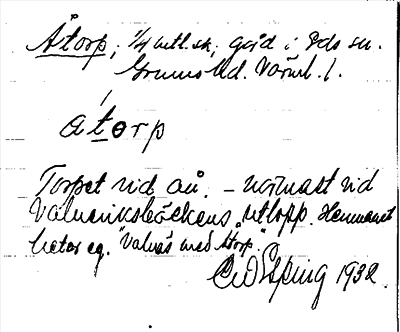 Åtorp, 1/4 mtl. sk, gård i Eds sn.
Grums hd. Värml. l.
åtorp
Torpet vid ån. – närmast vid
Valnäsbäckens utlopp. Hemmanet
heter eg. "Valnäs med Åtorp."
1932.